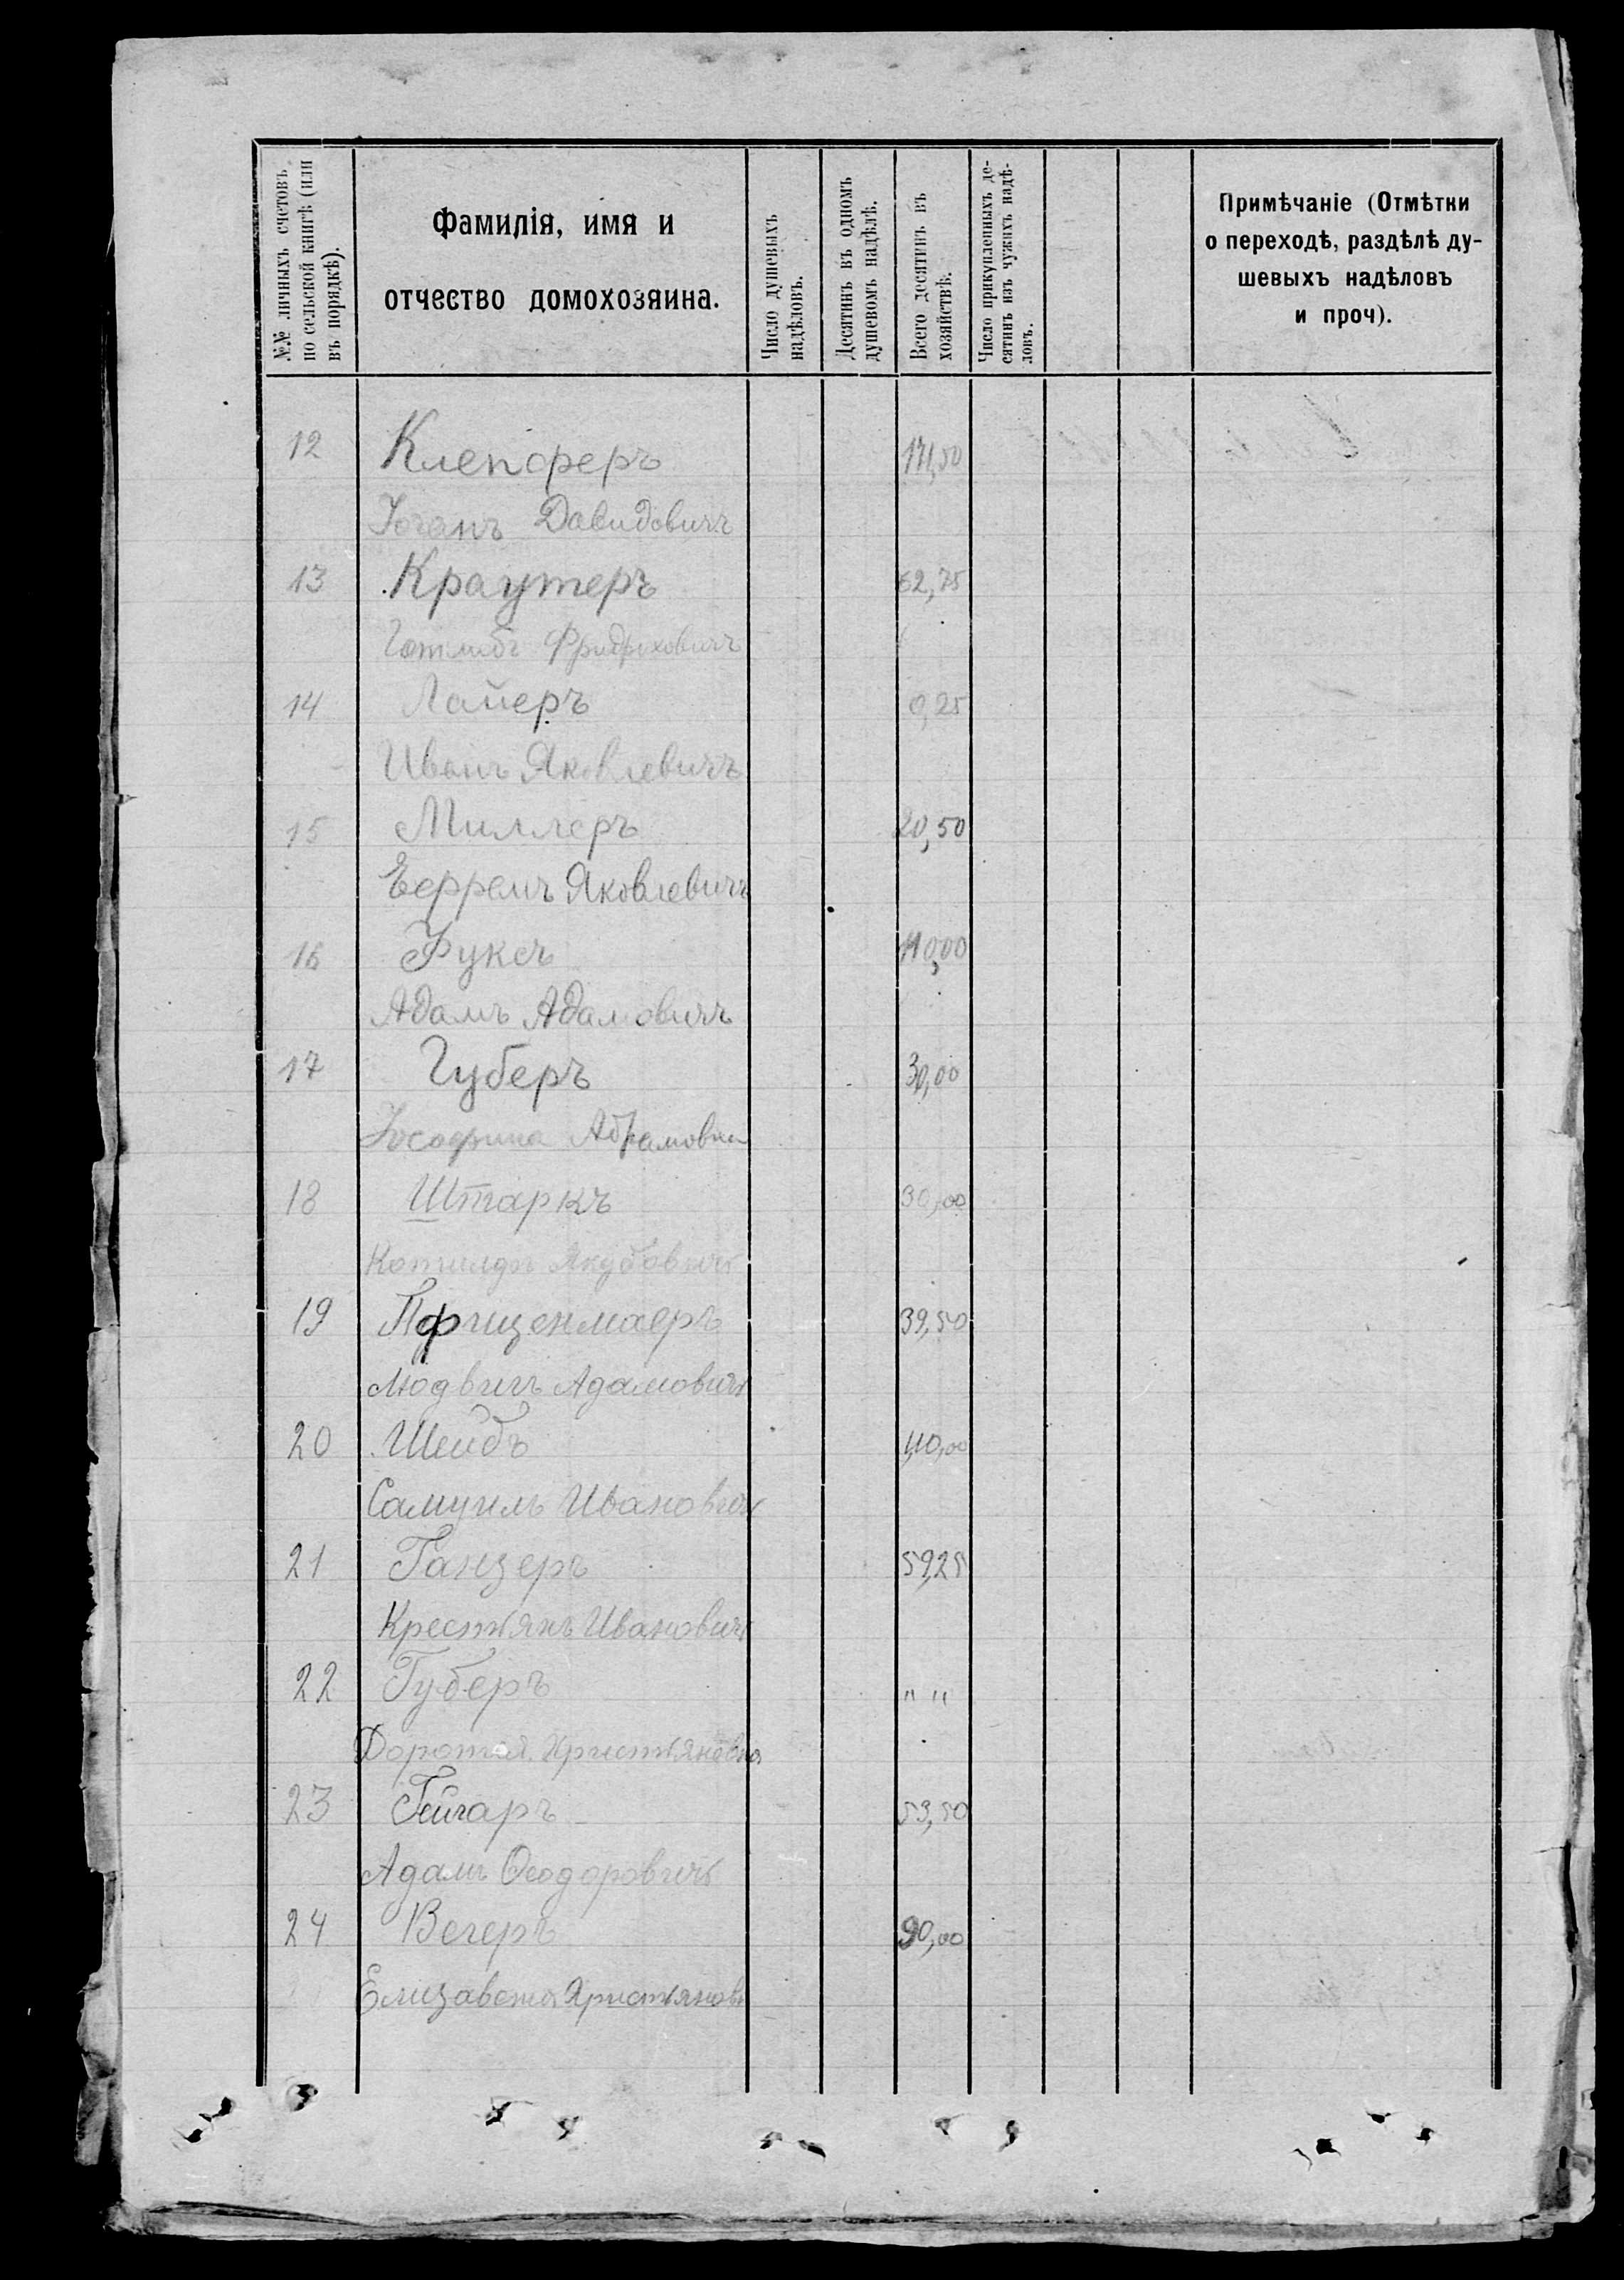 №№ личныхъ счетовъ
по сельской книгѣ (или
въ порядкѣ).
Фамилія, имя и
отчество домохозяина.
Число душевыхъ
надѣловъ.
Десятинъ въ одномъ
душевомъ надѣлѣ.
Всего десятинъ въ
хозяйствѣ.
Число прикупленныхъ де-
сятинъ изъ чужихъ надѣ-
ловъ.
Примѣчаніе (Отмѣтки
о переходѣ, раздѣлѣ ду-
шевыхъ надѣловъ
и проч).
12 Клепферъ 171,50
Іоганъ Давидовичъ
13 Краутеръ 62,75
Готлибъ Фридриховичъ
14 Лайеръ 0,25
Иванъ Яковлевичъ
15 Миллеръ 20,50
Ефремъ Яковлевичъ
16 Фуксъ 110,00
Адамъ Адамовичъ
17 Губеръ 30,00
Іосефина Абрамовна
18 Штаркъ 30,00
19 Пфиценмаеръ 39,50
Людвигъ Адамовичъ
20 Шейбъ 110,00
Самуилъ Ивановичъ
21 Ганзеръ 59,25
Крестьянъ Ивановичъ
22 Губеръ " "
Доротея Христьяновна
23 Гейгаръ 53,50
Адамъ Ѳеодоровичъ
24 Вегеръ 90,00
Елизавета Христьянов